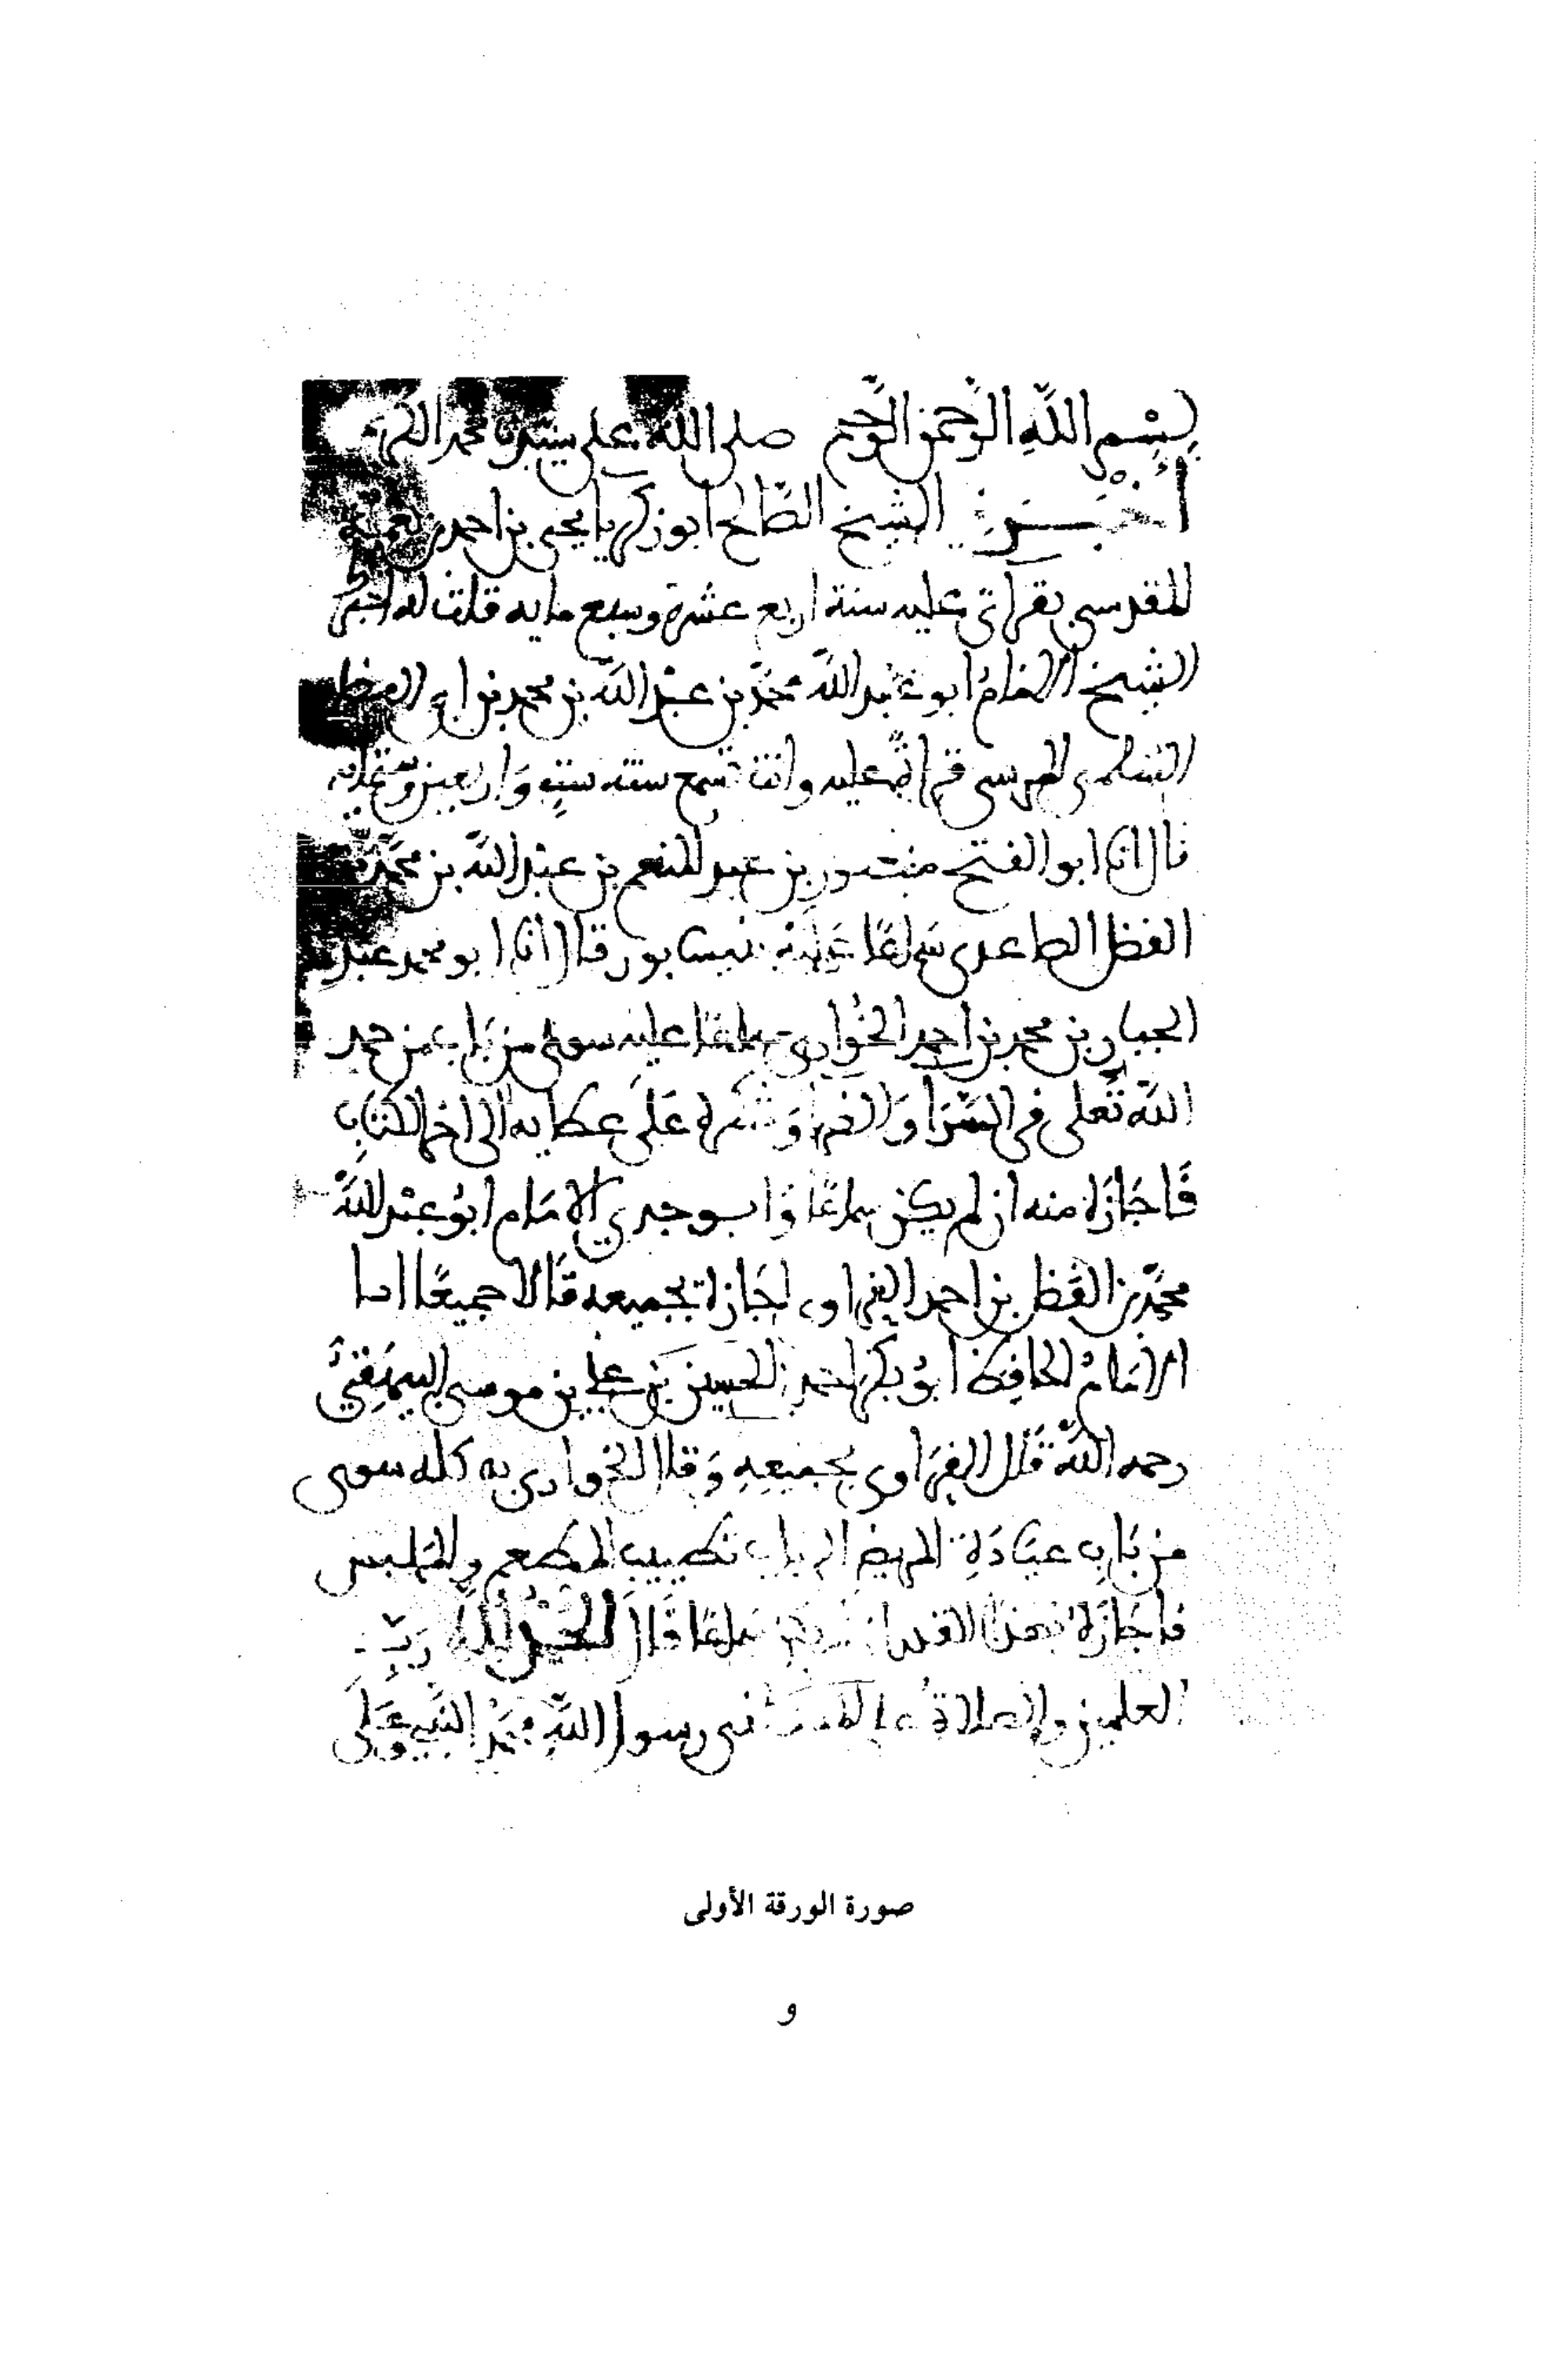 بِسْمِ اللَّهِ الرَّحمنِ الرَّحِيم صلى الله على سيدنا محمد الكريم
أَخْبَرَنِي الشيخ الصَّالح أبو زكريا يحيى بن احمد بن نعمة
المقدسي بقراتي عليه سنة اربع عشرة وسبع مايه قلت له اخبركم
الشيخ الامامُ ابو عَبْد اللّه محمَّد بن عبْد اللّه بن محمد بن ابي الفضل
السلمي المرسي قراةً عليه وانت تسمع سنة ستٍ وَاربعين وستمايه
قال انا ابو الفتح منصور بن عبد المنعم بن عبْد اللّه بن محمَّد بن
الفضل الصاعدي سَماعًا عَليْه بنيسابور قال انا ابو محمد عبد
الجبار بن محمد بن احمد الخُواري سماعًا عليه سوى من بَاب من حمد
اللّه تَعلى في السَّرَا وَالضرا وَشكره عَلَى عطايه الى اخر الكتاب
فَاجَازَة منه ان لم يكن سماعًا وَابو جدي الامَام ابوُ عبْد اللّه
محمَّد بن الفَضل بن احمد الفراوي اجَازة بجميعه قَالا جميعًا انبا
الامَامُ الحافِظ ابوُ بكر احمد بن الحسين بن علي بن موسى البيهَقيُّ
رحمه اللَّه قَال الفرَاوي بجميعه وَقال الخواري به كله سوى
من بَابِ عيَادَةِ المريض الى باب تطييب المطعم والمَلبس
فاجَازَة لهذا القدر ان لم يكن سَماعًا قَالَ الحَمْدُ لِلَّهِ رَبِّ
العلمين والصلاةُ على رسول اللَّهِ محمَّد النَّبي وَعَلى
صورة الورقة الأولى
و